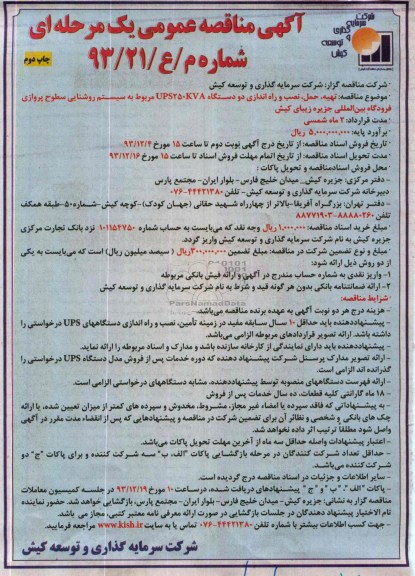 شرکت
سرمایه
گذاری
و
توسعه
کیش
آگهی مناقصه عمومی یک مرحله ای
شماره م/ع/۹۳/۲۱
چاپ دوم
- شرکت مناقصه گزار: شرکت سرمایه گذاری و توسعه کیش
- موضوع مناقصه: تهیه، حمل، نصب و راه اندازی دو دستگاه UPS۲۵۰KVA مربوط به سیستم روشنایی سطوح پروازی
فرودگاه بین‌المللی جزیره زیبای کیش
- مدت قرارداد: ۲ ماه شمسی
- برآورد پایه: ۵,۰۰۰,۰۰۰,۰۰۰ ریال
- تاریخ فروش اسناد مناقصه: از تاریخ درج آگهی نوبت دوم تا ساعت ۱۵ مورخ ۹۳/۱۲/۴
- مدت تحویل اسناد مناقصه: از تاریخ اتمام مهلت فروش اسناد تا ساعت ۱۵ مورخ ۹۳/۱۲/۱۶
- محل فروش اسناد مناقصه و تحویل پاکات:
- دفتر مرکزی: جزیره کیش_ میدان خلیج فارس- بلوار ایران- مجتمع پارس
دبیرخانه شرکت سرمایه گذاری و توسعه کیش- تلفن ۴۴۴۲۱۳۸۰-۰۷۶
- دفتر تهران: بزرگراه آفریقا -بالاتر از چهارراه شهید حقانی (جهان کودک) -کوچه کیش -شماره۵۰-طبقه همکف
تلفن ۸۸۸۸۰۲۶۰-۸۸۷۷۱۹۰۳
- مبلغ خرید اسناد مناقصه: ۱,۰۰۰,۰۰۰ ریال وجه نقد که می‌بایست به حساب شماره ۱۰۱۱۵۴۷۵۰ نزد بانک تجارت مرکزی
جزیره کیش به نام شرکت سرمایه گذاری و توسعه کیش واریز گردد.
- مبلغ و نوع تضمین شرکت در مناقصه: مبلغ تضمین ۳۰۰,۰۰۰,۰۰۰ریال ( سیصد میلیون ریال) است که می‌بایست به یکی
از دو روش ذیل ارائه شود:
۱- واریز نقدی به شماره حساب مندرج در آگهی و ارائه فیش بانکی مربوطه
۲- ارائه ضمانتنامه بانکی بدون هر گونه قید و شرط به نام شرکت سرمایه گذاری و توسعه کیش
ParsNamadData
شرایط مناقصه:
- هزینه درج هر دو نوبت آگهی به عهده برنده مناقصه می‌باشد.
- پیشنهاددهنده باید حداقل ۱۰ سال سابقه مفید در زمینه تأمین، نصب و راه اندازی دستگاههای UPS درخواستی را
داشته باشد. ارائه تصویر قراردادهای مربوطه الزامی می‌باشد.
- پیشنهاددهنده باید دارای نمایندگی از کارخانه سازنده باشد و مدارک و اسناد مربوطه را ارائه نماید.
- ارائه تصویر مدارک پرسنل شرکت پیشنهاد دهنده که دوره خدمات پس از فروش مدل دستگاه UPS درخواستی را
گذرانده اند الزامی است.
- ارائه فهرست دستگاههای منصوبه توسط پیشنهاددهنده، مشابه دستگاههای درخواستی الزامی است.
- ۱۸ ماه گارانتی کلیه قطعات، ده سال خدمات پس از فروش
- به پیشنهاداتی که فاقد سپرده یا امضاء، غیر مجاز، مشروط، مخدوش و سپرده های کمتر از میزان تعیین شده، یا ارائه
چک های بانکی و شخصی و نظائر آن برای تضمین شرکت در مناقصه و پیشنهادهایی که پس از انقضاء مدت مقرر در آگهی
واصل شود مطلقاً ترتیب اثر داده نخواهد شد.
- اعتبار پیشنهادات واصله حداقل سه ماه از آخرین مهلت تحویل پاکات می‌باشد.
- حداقل تعداد شرکت کنندگان در مرحله بازگشایی پاکات "الف، ب" سه شرکت کننده و برای پاکات "ج" دو
شرکت کننده می‌باشد.
- سایر اطلاعات و جزئیات در اسناد مناقصه درج گردیده است.
- پاکات "الف"، "ب" و "ج" پیشنهادهای دریافت شده، در ساعت ۱۰ مورخ ۹۳/۱۲/۱۹ در جلسه کمیسیون معاملات
مناقصه گزار به نشانی: جزیره کیش- میدان خلیج فارس- بلوار ایران- مجتمع پارس، بازگشایی خواهد شد. حضور نماینده
تام الاختیار پیشنهاد دهندگان در جلسات بازگشایی در صورت ارائه معرفی نامه معتبر کتبی، مجاز می باشد.
- جهت کسب اطلاعات بیشتر با شماره تلفن ۴۴۴۲۱۳۸۰-۰۷۶ تماس یا به سایت www.kish.ir مراجعه فرمایید.
شرکت سرمایه گذاری و توسعه کیش